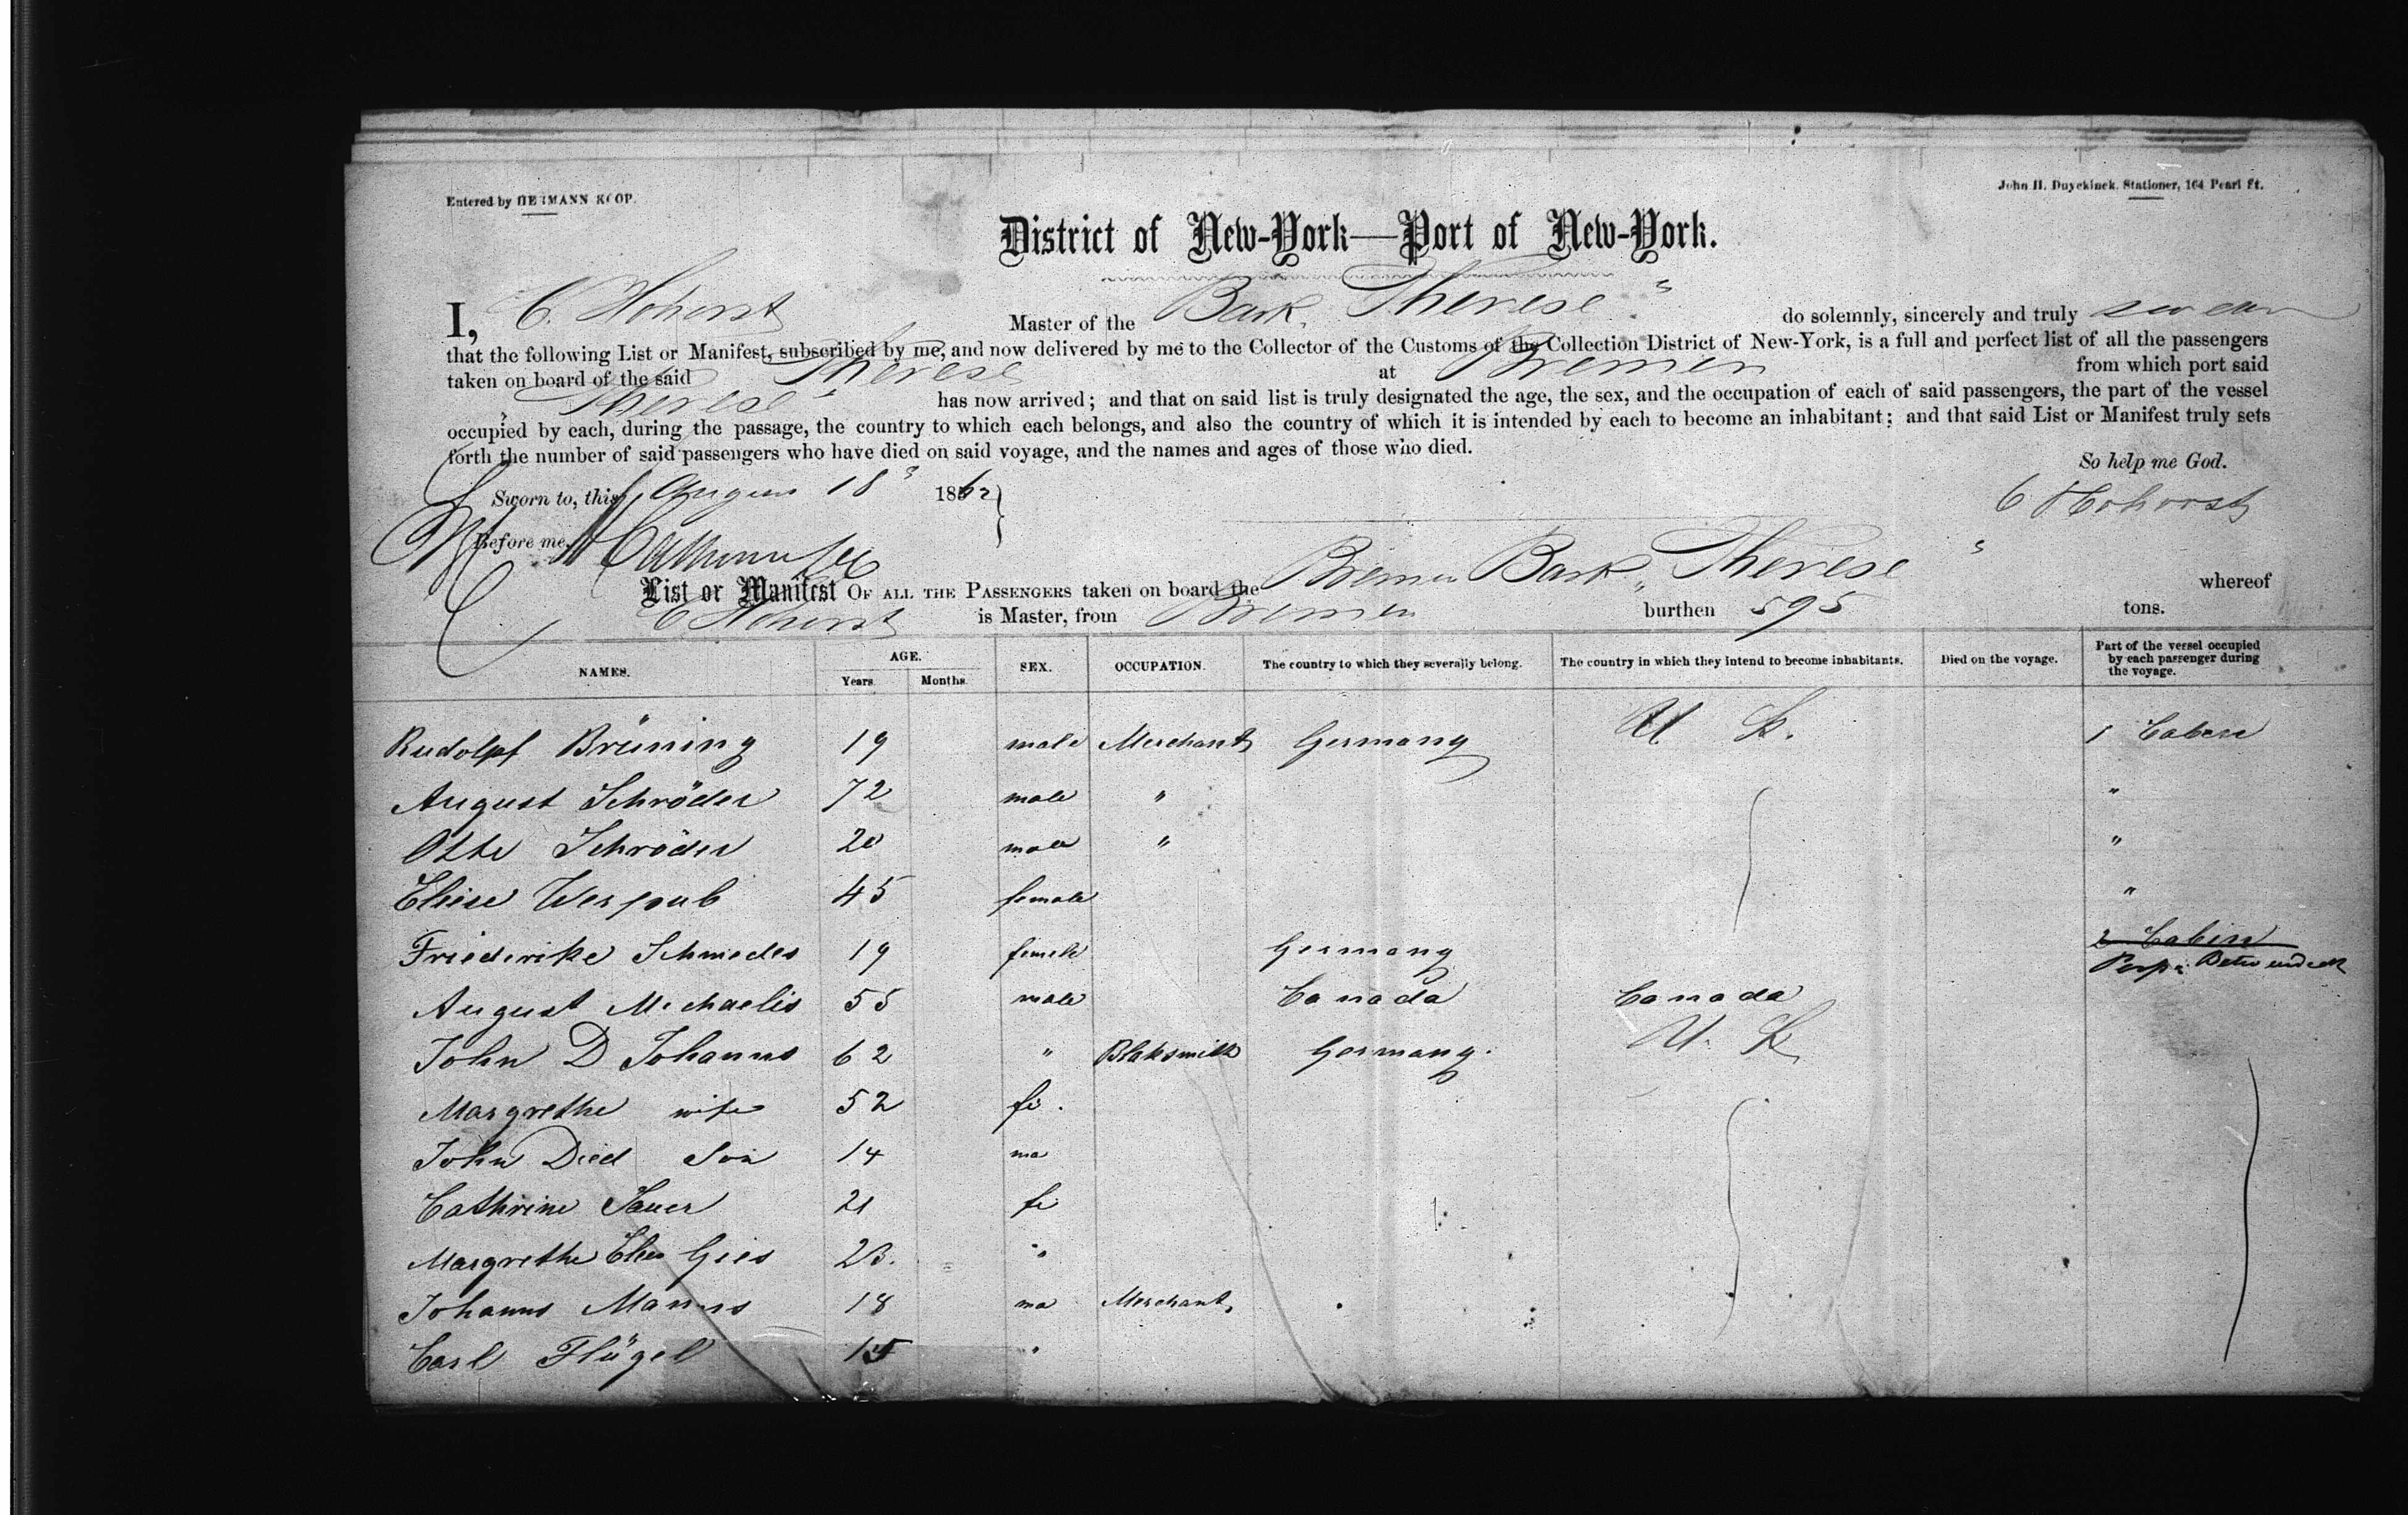 Entered by HERMANN KOOP.
John H. Duyckinck, Stationer, 164 Pearl St.
District of New-York—Port of New-York.
I, C. Hohorst Master of the Bark „Therese" do solemnly, sincerely and truly swear
that the following List or Manifest, subscribed by me, and now delivered by me to the Collector of the Customs of the Collection District of New-York, is a full and perfect list of all the passengers
taken on board of the said Therese at Bremen from which port said
Therese has now arrived; and that on said list is truly designated the age, the sex, and the occupation of each of said passengers, the part of the vessel
occupied by each, during the passage, the country to which each belongs, and also the country of which it is intended by each to become an inhabitant; and that said List or Manifest truly sets
forth the number of said passengers who have died on said voyage, and the names and ages of those who died.
So help me God.
Sworn to, this August 18 1862
C Hohorst
Before me,
List or Manifest OF ALL THE PASSENGERS taken on board the Bremen Bark „Therese" whereof
C Hohorst is Master, from Bremen burthen 595 tons.
NAMES. AGE. Years. Months. SEX. OCCUPATION. The country to which they severally belong. The country in which they intend to become inhabitants. Died on the voyage. Part of the vessel occupied by each passenger during the voyage.
Rudolpf Brüning 19 male Merchant Germany U. S. 1 Cabin
August Schröder 72 male " "
Otto Schröder 20 male " "
Elise Werpub 45 female "
Friederike Schmedes 19 female Germany 2 Cabin
August Michaelis 55 male Canada Canada
John D Johanns 62 " Blaksmith Germany. U. S.
Margrethe wife 52 fe.
John Died Son 14 ma
Cathrine Sauer 21 fe
Margrethe Elise Gies 23. "
Johanns Manns 18 ma Merchant.
Carl Flügel 15 "